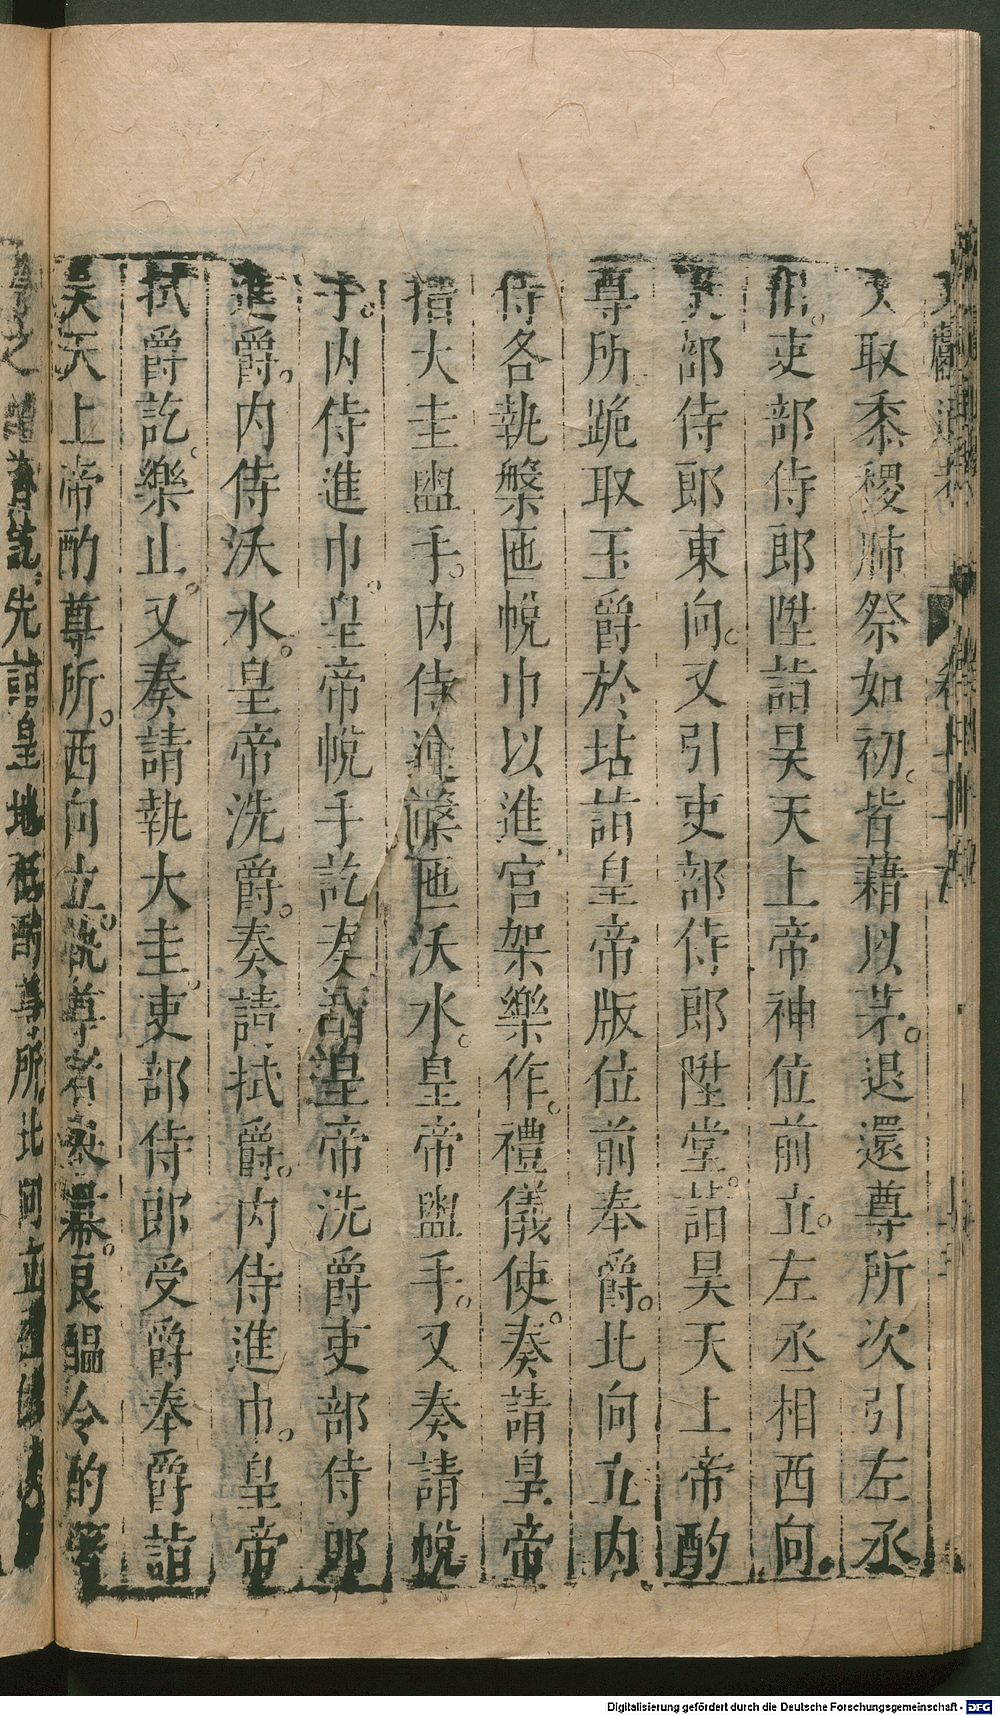 又取黍稷肺祭如初。皆藉以茅。退還尊所次引左丞
相。吏部侍郎陞詣昊天上帝神位前立。左丞相西向。
吏部侍郎東向。又引吏部侍郎陞堂。詣昊天上帝酌
尊所。跪取玉爵於坫詣皇帝版位前奉爵。北向立内
侍各執槃匜帨巾以進宮架樂作。禮儀使。奏請皇帝
搢大圭盥手。内侍進槃匜沃水。皇帝盥手。又奏請帨
手。内侍進巾。皇帝帨手訖奏請皇帝洗爵吏部侍郎
進爵。内侍沃水。皇帝洗爵。奏請拭爵。内侍進巾。皇帝
拭爵訖。樂止。又奏請執大圭。吏部侍郎受爵奉爵詣
昊天上帝酌尊所。西向立。執尊者舉冪。良醞令酌
之 訖。先詣皇地祇酌尊所北向立